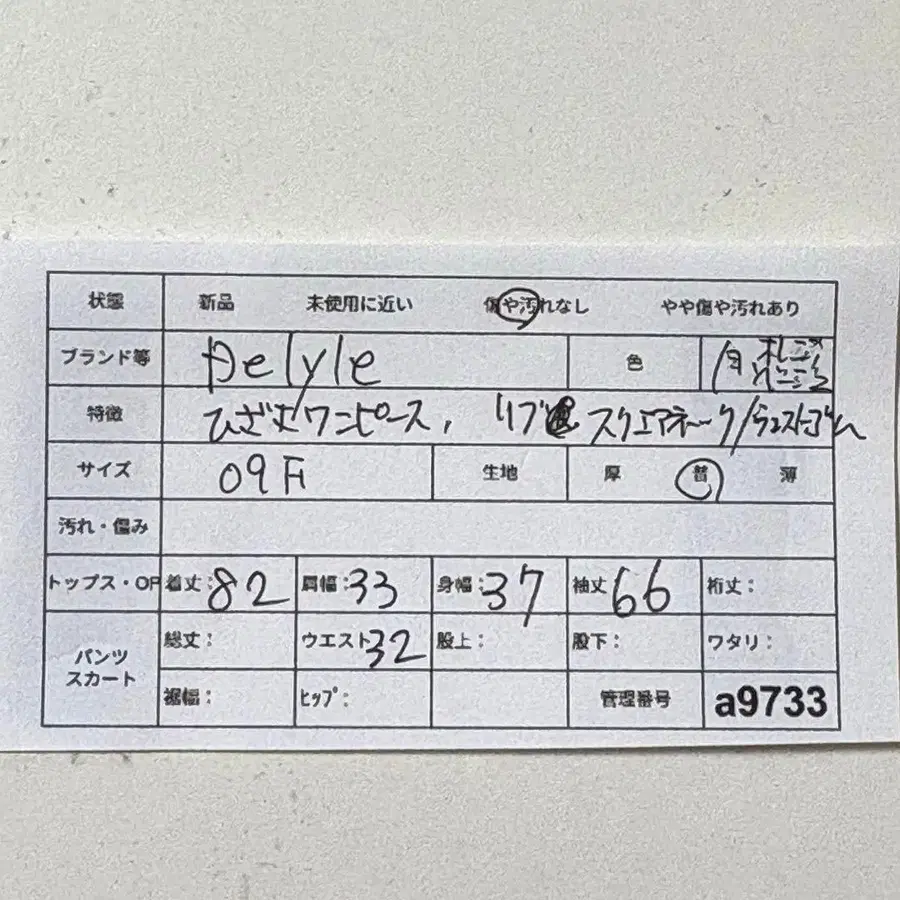 状態 新品 未使用に近い 傷や汚れなし やや傷や汚れあり
ブランド等 Delyle 色
特徴 ひざ丈ワンピース, リブ スクエアネック/ウエストゴム
サイズ 09F 生地 厚 普 薄
汚れ・傷み
トップス・OP 着丈:82 肩幅:33 身幅:37 袖丈 66 裄丈:
パンツ スカート 総丈: ウエスト 32 股上: 股下: ワタリ:
裾幅: ヒップ: 管理番号 a9733